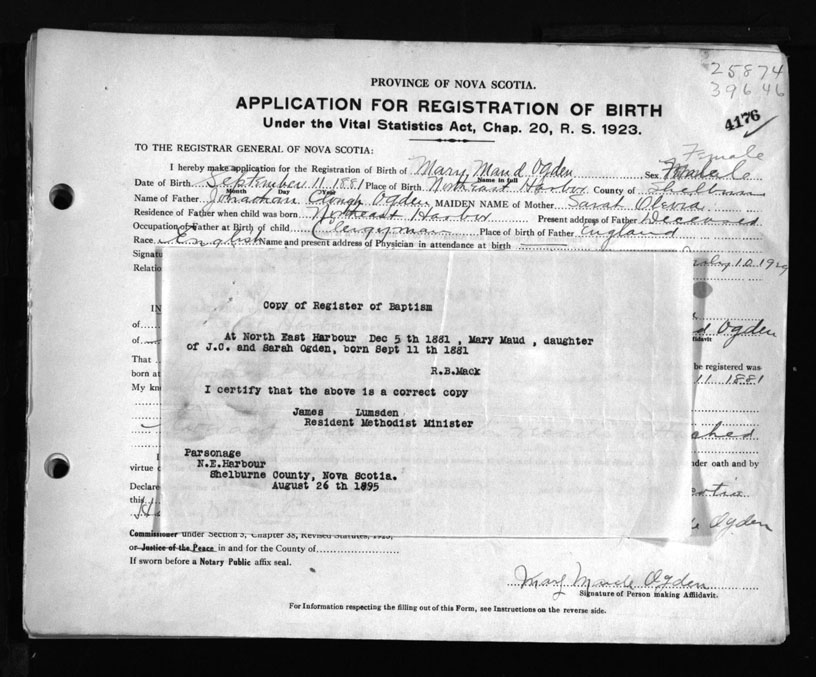 25874
39646
4176
PROVINCE OF NOVA SCOTIA.
APPLICATION FOR REGISTRATION OF BIRTH
Under the Vital Statistics Act, Chap. 20, R. S. 1923.
TO THE REGISTRAR GENERAL OF NOVA SCOTIA:
Female
I hereby make application for the Registration of Birth of Mary Maud Ogden Sex
Name in full
Date of Birth September 11 1881 Place of Birth Northeast Harbor County of Shelburne
Month Day Year
Name of Father Jonathan Clough Ogden MAIDEN NAME of Mother Sarah
Residence of Father when child was born Northeast Harbor Present address of Father Deceased
Occupation of Father at Birth of child Clergyman Place of birth of Father England
Race English Name and present address of Physician in attendance at birth
Signatu
Relatio
IN
of
d Ogden
fidavit
of
That be registered was
born at 11 1881
My kno
ched
I
virtue o der oath and by
Declare
this
Ogden
Copy of Register of Baptism
At North East Harbour Dec 5 th 1881 , Mary Maud , daughter
of J.C. and Sarah Ogden, born Sept 11 th 1881
R.B.Mack
I certify that the above is a correct copy
James Lumsden
Resident Methodist Minister
Parsonage
N.E.Harbour
Shelburne County, Nova Scotia.
August 26 th 1895
Commissioner under Section 3, Chapter 38, Revised Statutes, 1923,
or Justice of the Peace in and for the County of
If sworn before a Notary Public affix seal.
Mary Maude Ogden
Signature of Person making Affidavit.
For Information respecting the filling out of this Form, see Instructions on the reverse side.